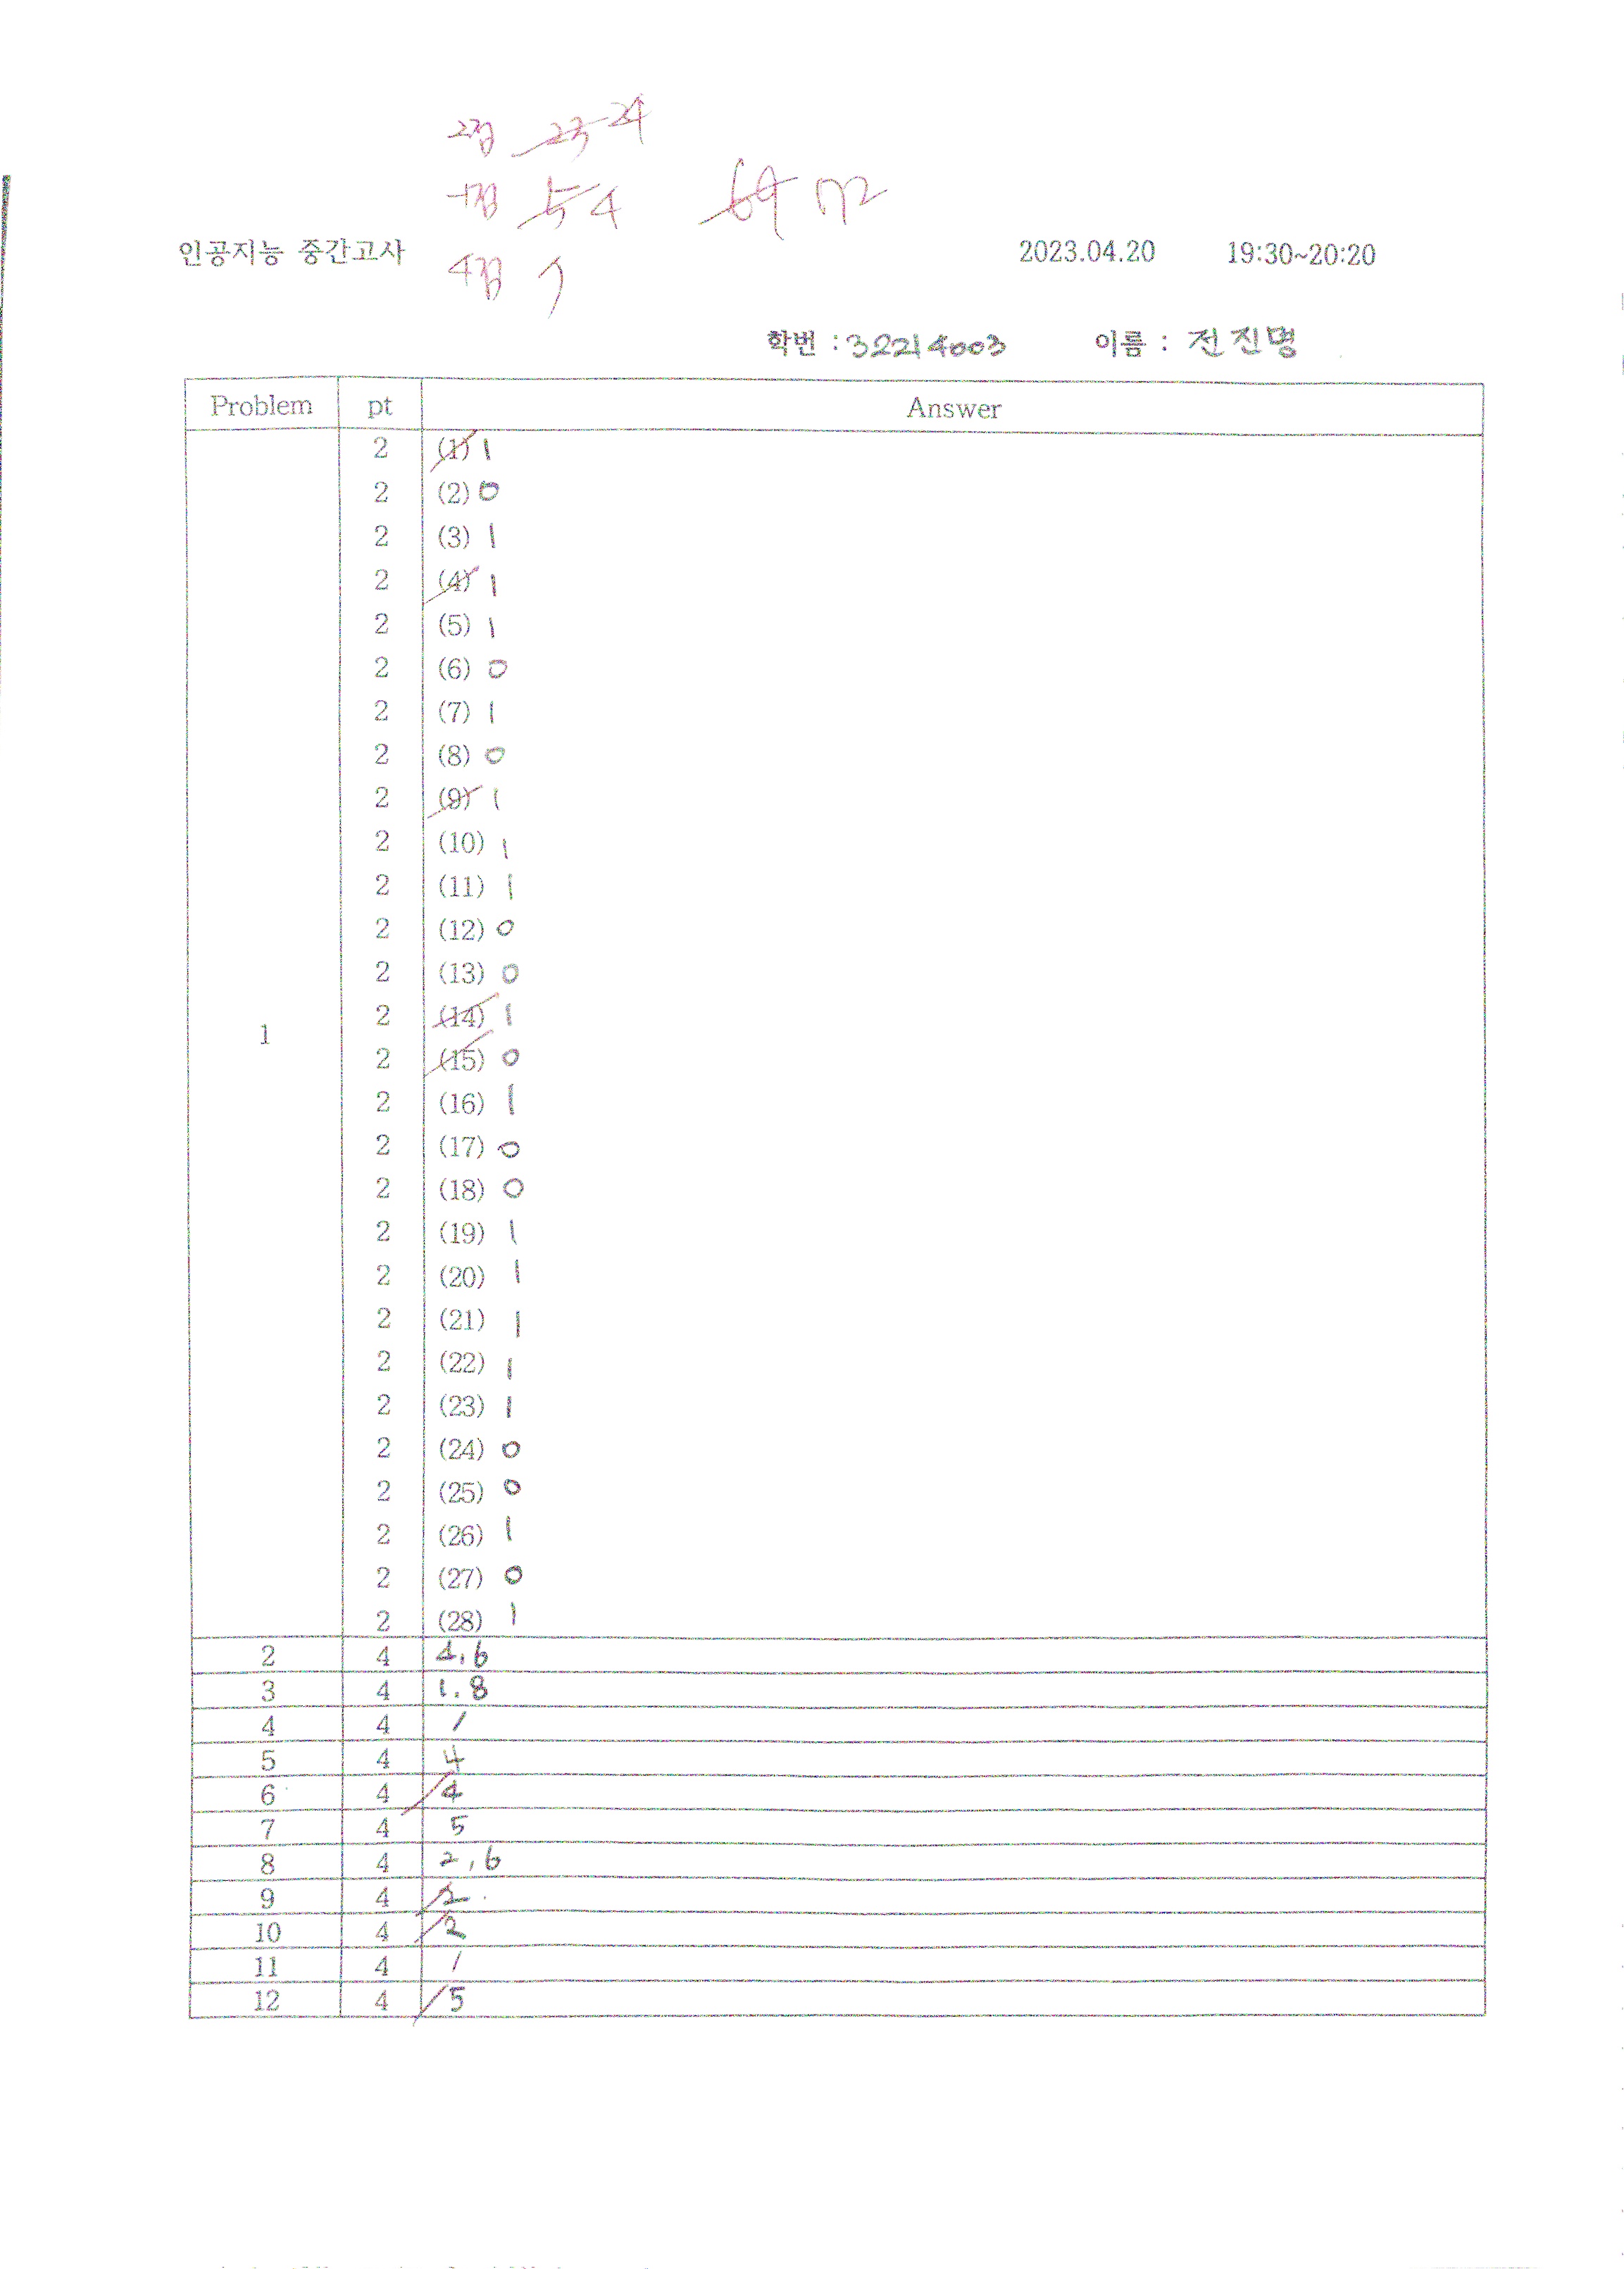 2점 23 24
-1점 5 4 69 72
4점 7
인공지능 중간고사 2023.04.20 19:30~20:20
학번 : 32214003 이름 : 전진명
Problem pt Answer
2 (1) 1
2 (2) 0
2 (3) 1
2 (4) 1
2 (5) 1
2 (6) 0
2 (7) 1
2 (8) 0
2 (9) 1
2 (10) 1
2 (11) 1
2 (12) 0
2 (13) 0
2 (14) 1
1
2 (15) 0
2 (16) 1
2 (17) 0
2 (18) 0
2 (19) 1
2 (20) 1
2 (21) 1
2 (22) 1
2 (23) 1
2 (24) 0
2 (25) 0
2 (26) 1
2 (27) 0
2 (28) 1
2 4 4,6
3 4 1.8
4 4 1
5 4 4
6 4 4
7 4 5
8 4 2,6
9 4 2
10 4 2
11 4 1
12 4 5